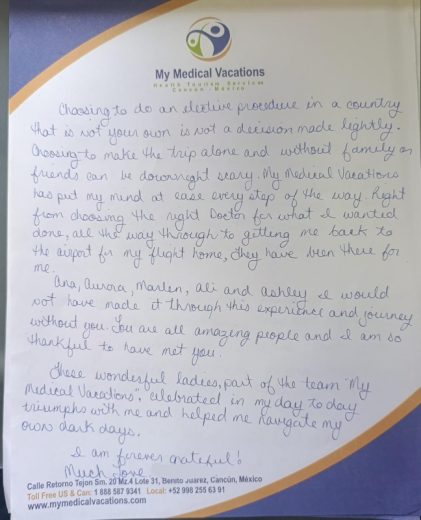 My Medical Vacations
Health Tourism Services
Cancun - México
Choosing to do an elective procedure in a country
that is not your own is not a decision made lightly.
Choosing to make the trip alone and without family or
friends can be downright scary. My Medical Vacations
has put my mind at ease every step of the way. Right
from choosing the right Doctor for what I wanted
done, all the way through to getting me back to
the airport for my flight home, they have been there for
me.
Ana, Aurora, Marlen, Ali and Ashley I would
not have made it through this experience and journey
without you. You are all amazing people and I am so
thankful to have met you.
These wonderful ladies, part of the team "My
Medical Vacations", celebrated in my day to day
triumphs with me and helped me navigate my
own dark days.
I am forever grateful!
Much love
Calle Retorno Tejon Sm. 20 Mz.4 Lote 31, Benito Juarez, Cancún, México
Toll Free US & Can: 1 888 587 9341 Local: +52 998 255 63 91
www.mymedicalvacations.com